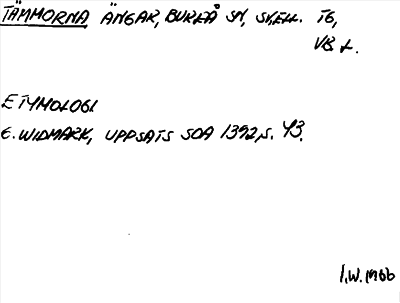 TÄMMORNA ÄNGAR, BUREÅ SN, SKELL. TG,
VB L.
ETYMOLOGI
G. WIDMARK, UPPSATS SOA 1392, S. 43.
I.W. 1966